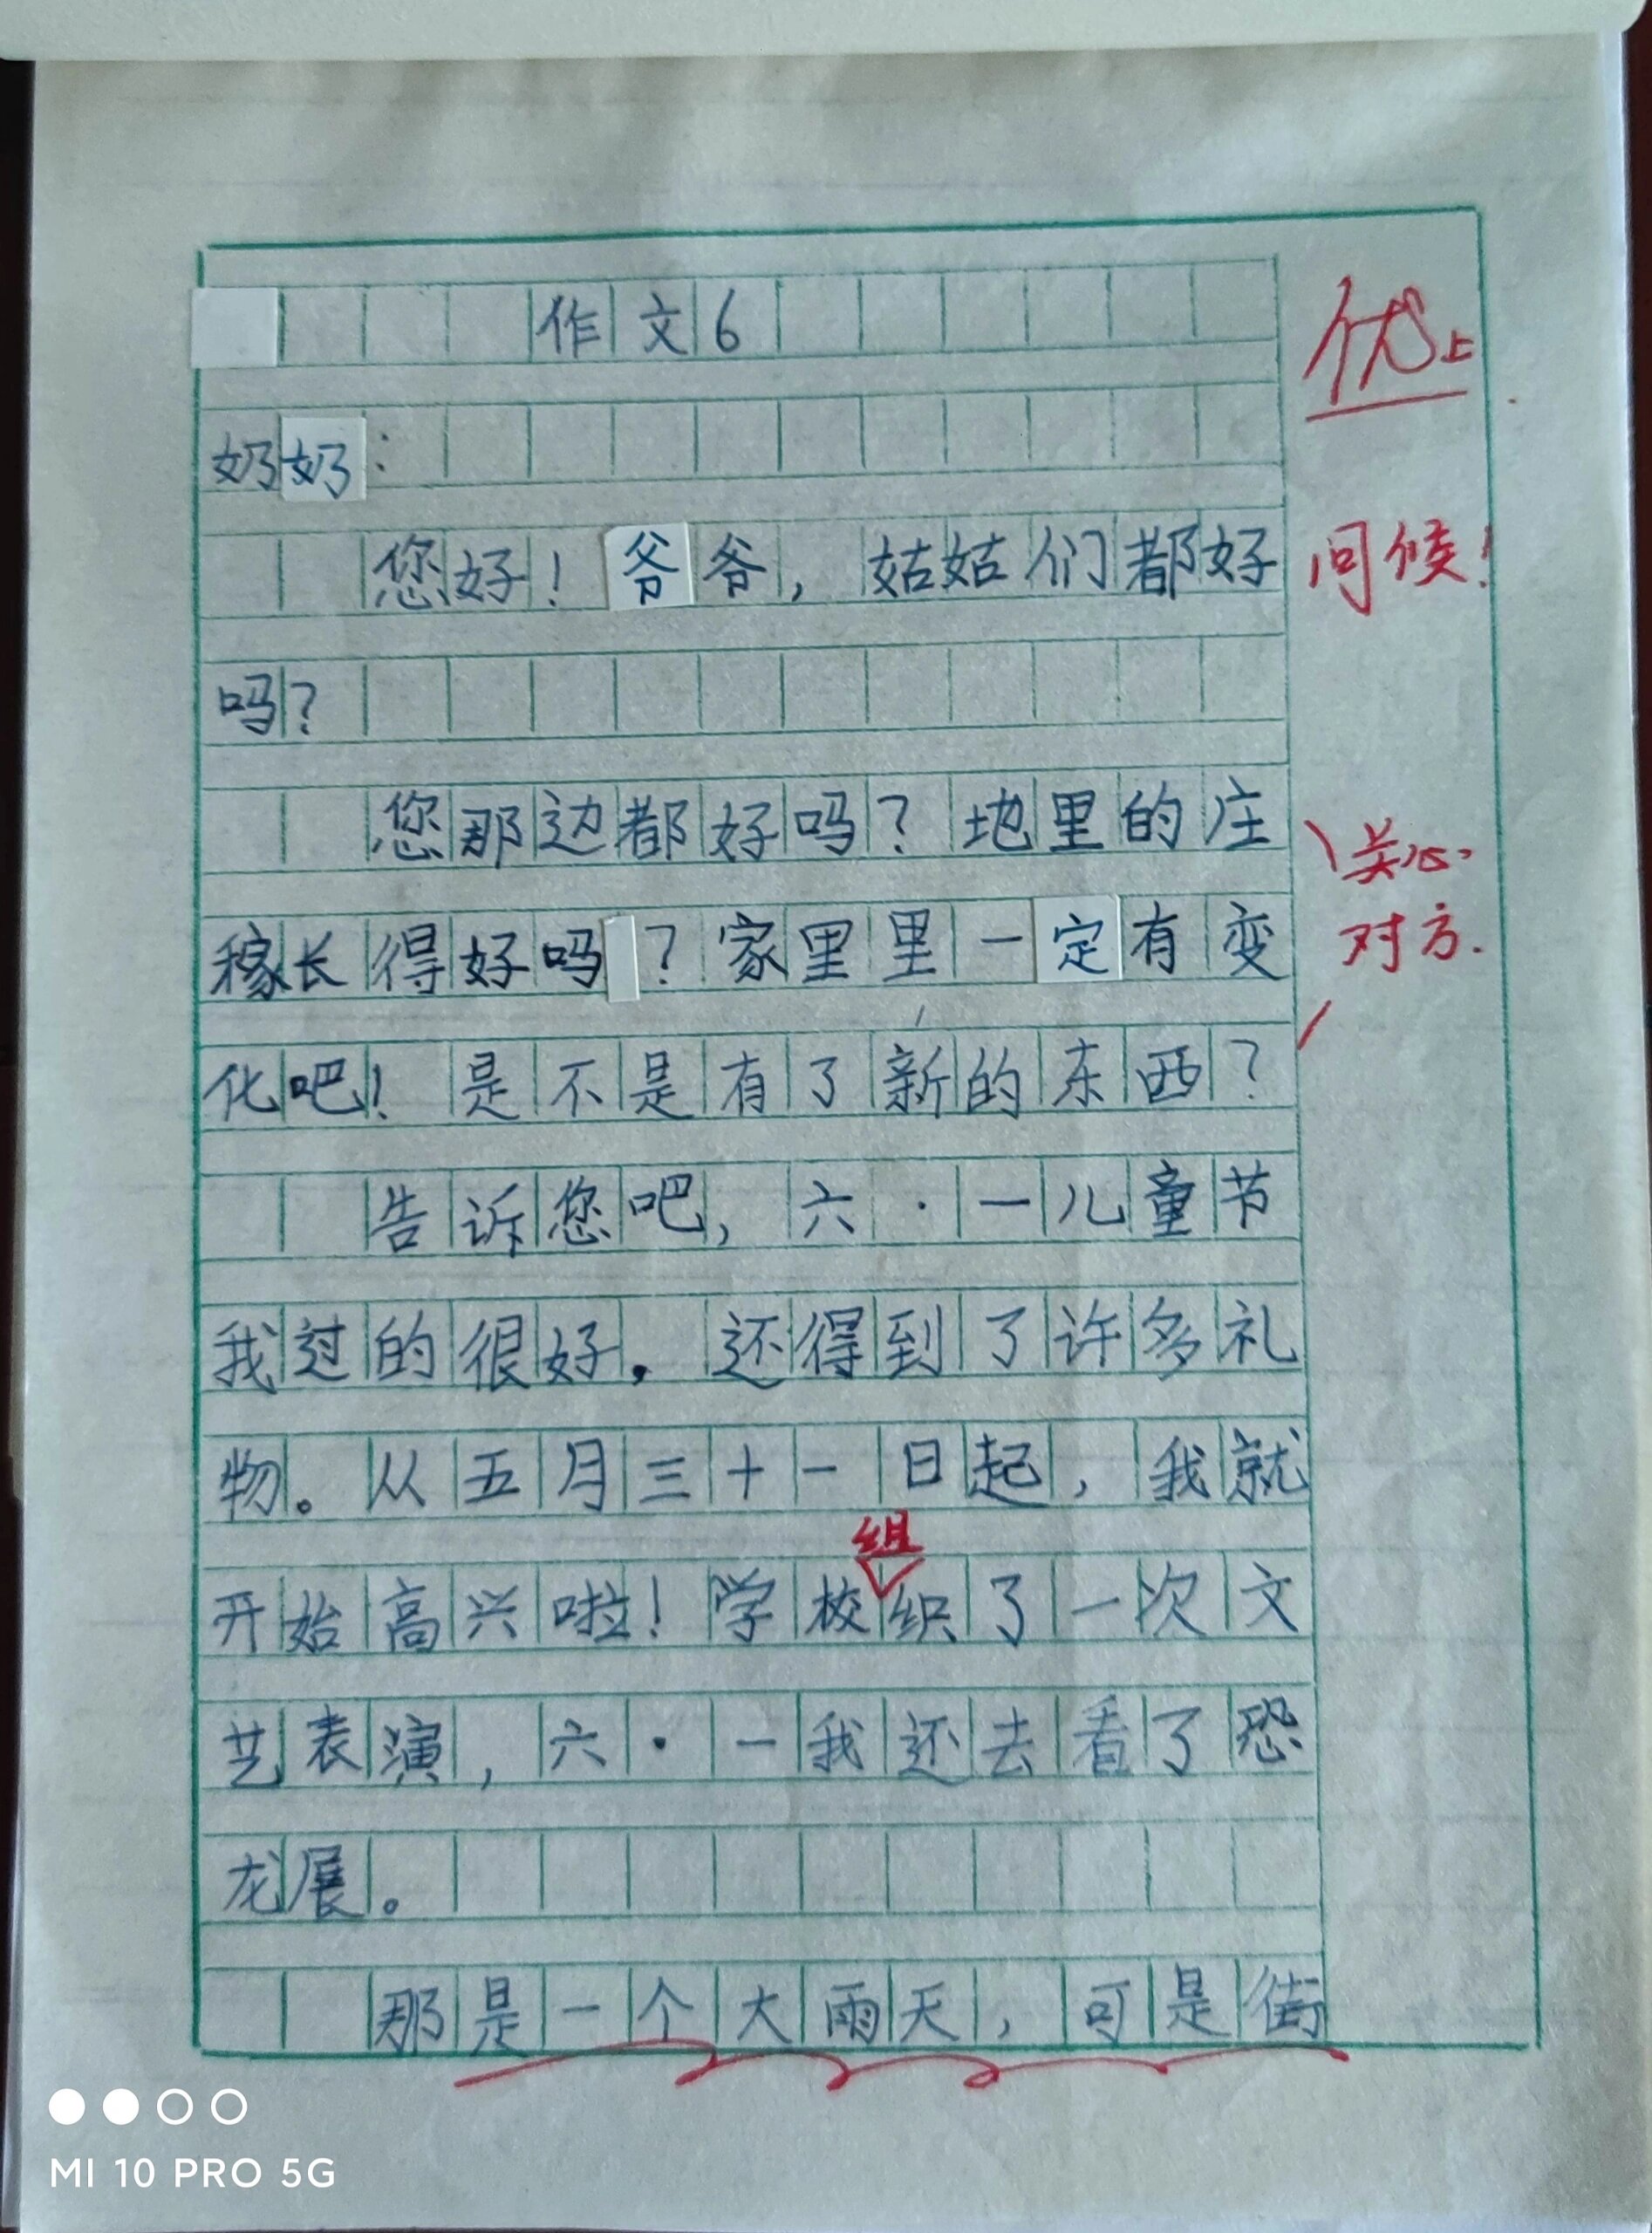 作文6
优上
奶奶：
您好！爷爷，姑姑们都好
问候！
吗？
您那边都好吗？地里的庄
关心
稼长得好吗？家里里一定有变
对方.
化吧！是不是有了新的东西？
告诉您吧，六·一儿童节
我过的很好，还得到了许多礼
物。从五月三十一日起，我就
组
开始高兴啦！学校织了一次文
艺表演，六·一我还去看了恐
龙展。
那是一个大雨天，可是街
MI 10 PRO 5G